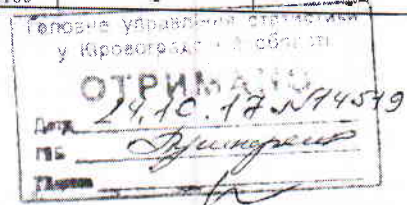 Головне управління статистики
у Кіровоградській області
ОТРИМАНО
Дата 24.10.17 №14519
ПІБ
Підпис